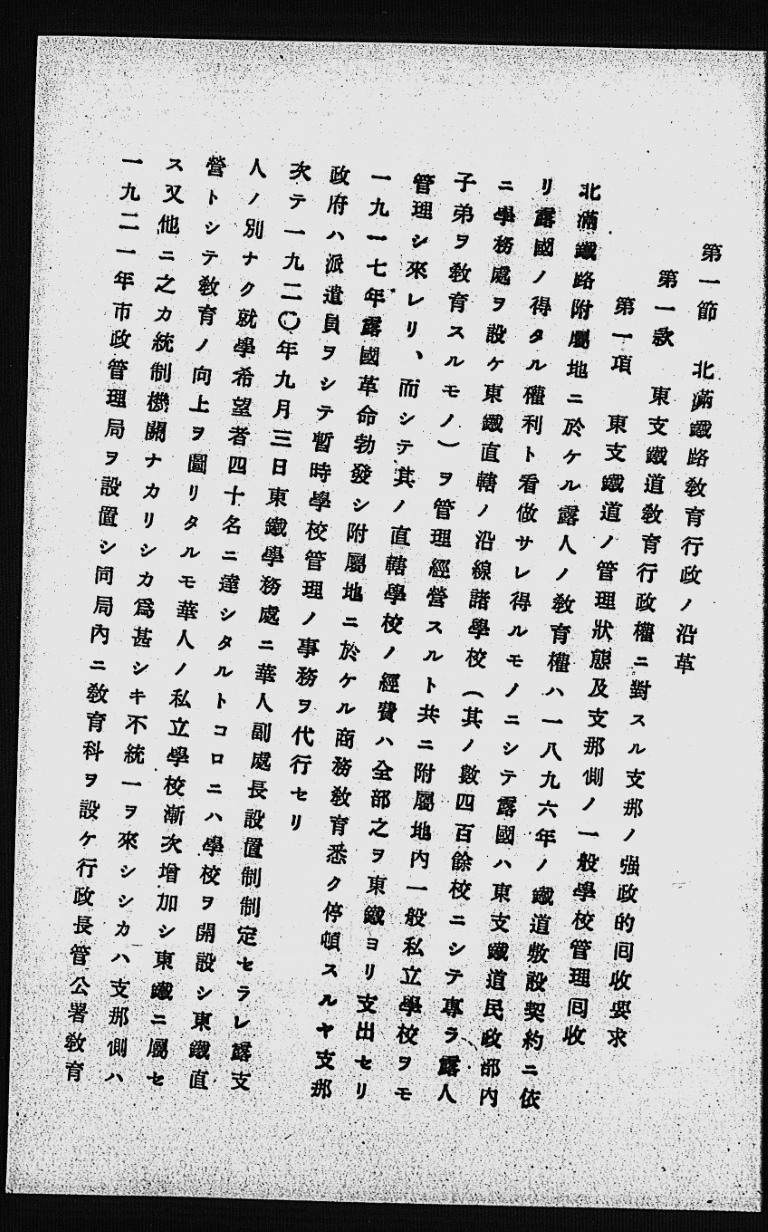 第一節　北滿鐵路敎育行政ノ沿革
第一款　東支鐵道敎育行政權ニ對スル支那ノ强政的囘收要求
第一項　東支鐵道ノ管理狀態及支那側ノ一般學校管理囘收
北滿鐵路附屬地ニ於ケル露人ノ敎育權ハ一八九六年ノ鐵道敷設契約ニ依
リ露國ノ得タル權利ト看做サレ得ルモノニシテ露國ハ東支鐵道民政部內
ニ學務處ヲ設ケ東鐵直轄ノ沿線諸學校（其ノ數四百餘校ニシテ專ラ露人
子弟ヲ敎育スルモノ）ヲ管理經營スルト共ニ附屬地內一般私立學校ヲモ
管理シ來レリ、而シテ其ノ直轄學校ノ經費ハ全部之ヲ東鐵ヨリ支出セリ
一九一七年露國革命勃發シ附屬地ニ於ケル商務敎育悉ク停頓スルヤ支那
政府ハ派遣員ヲシテ暫時學校管理ノ事務ヲ代行セリ
次テ一九二〇年九月三日東鐵學務處ニ華人副處長設置制制定セラレ露支
人ノ別ナク就學希望者四十名ニ達シタルトコロニハ學校ヲ開設シ東鐵直
營トシテ敎育ノ向上ヲ圖リタルモ華人ノ私立學校漸次增加シ東鐵ニ屬セ
ス又他ニ之カ統制機關ナカリシカ爲甚シキ不統一ヲ來シシカハ支那側ハ
一九二一年市政管理局ヲ設置シ同局內ニ敎育科ヲ設ケ行政長管公署敎育